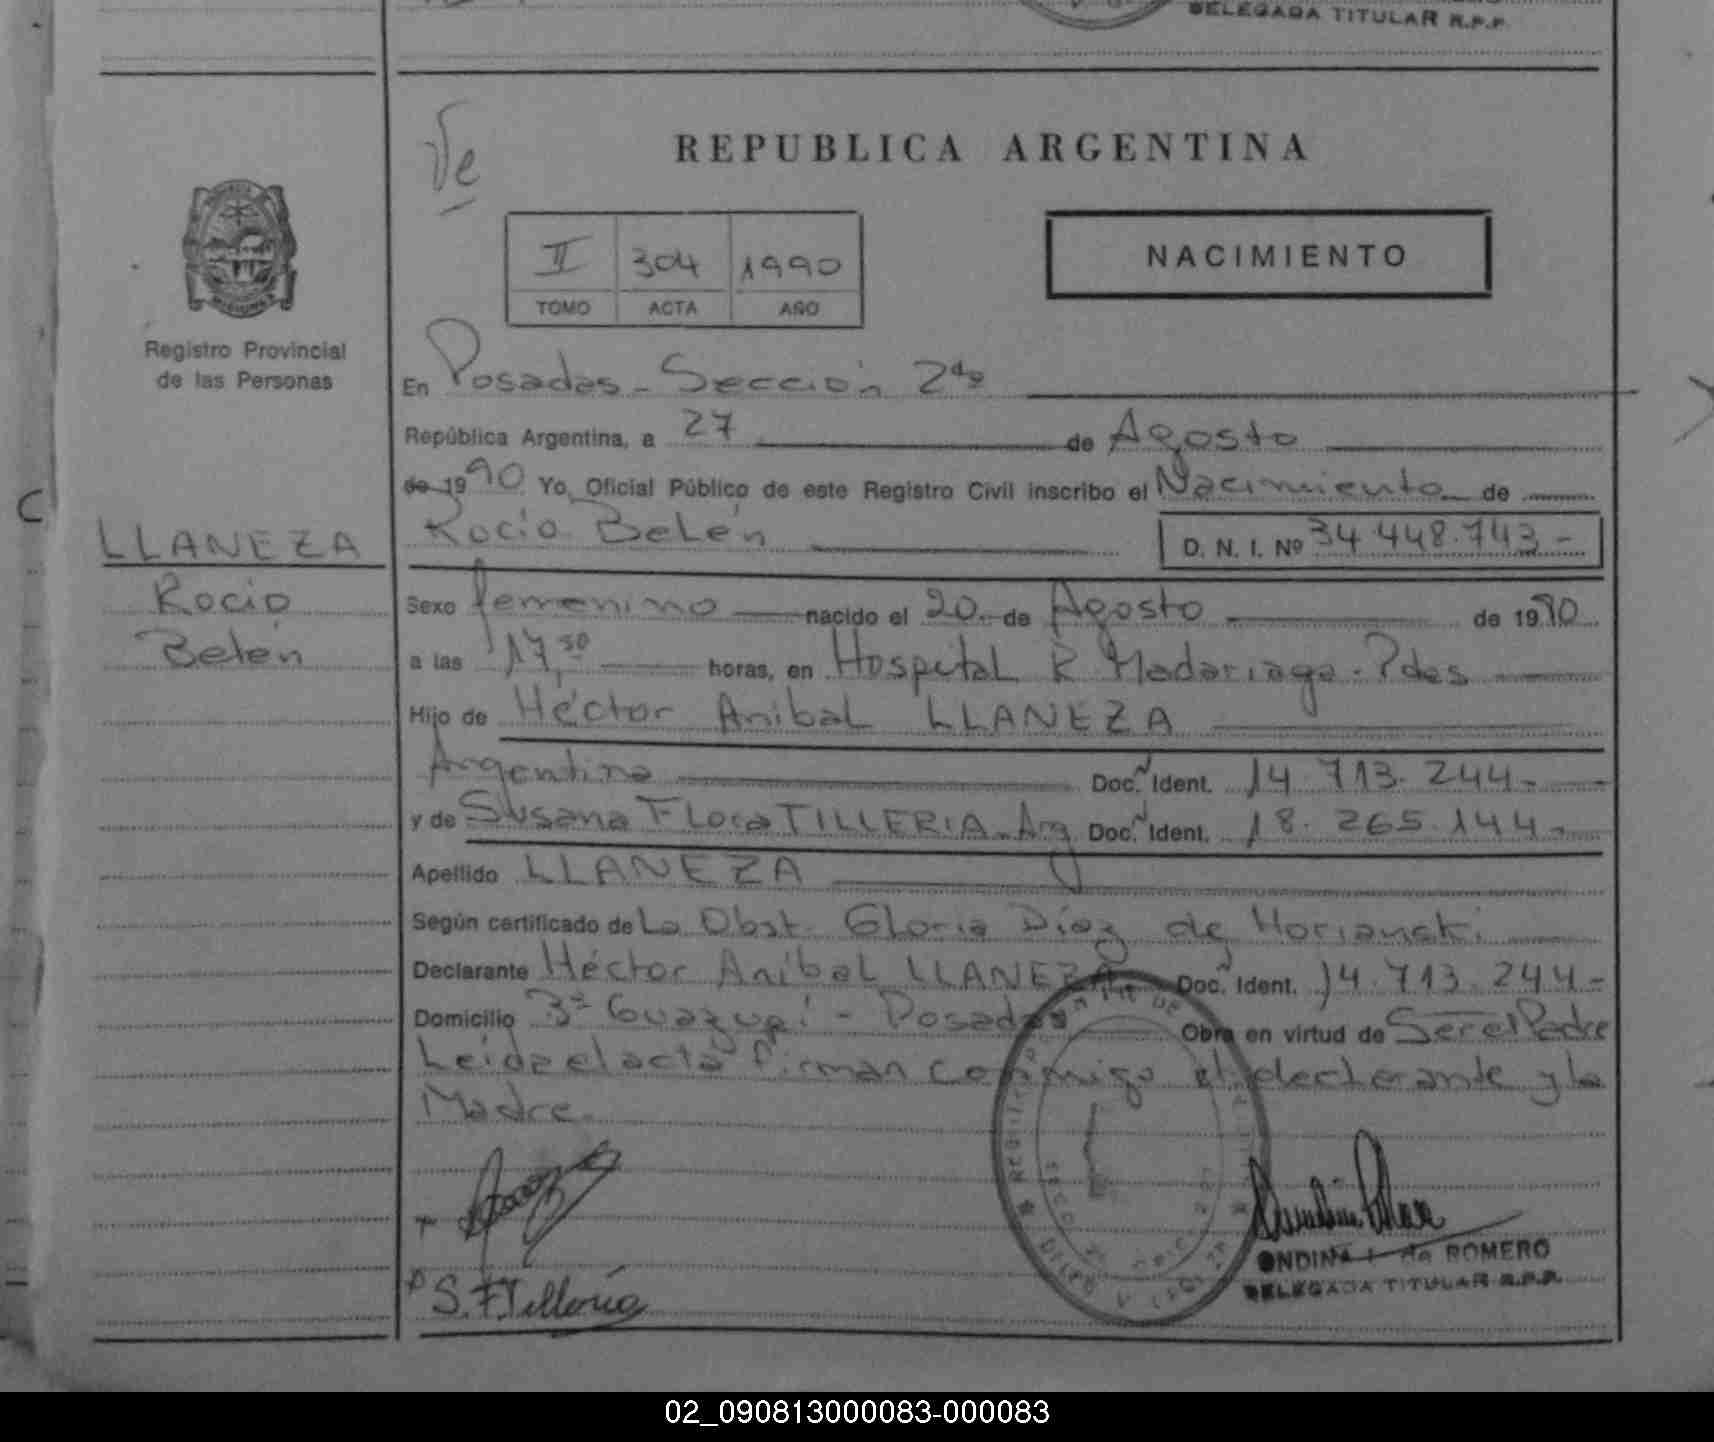 DELEGADA TITULAR R.P.P.
Ve
REPUBLICA ARGENTINA
II 304 1990
TOMO ACTA AÑO
NACIMIENTO
Registro Provincial
de las Personas
En Posadas - Sección 2da
República Argentina, a 27 de Agosto
de 1990 Yo, Oficial Público de este Registro Civil inscribo el Nacimiento de
Rocio Belén D. N. I. Nº 34.448.743-
LLANEZA
Rocio
Belén
Sexo femenino nacido el 20 de Agosto de 1990
a las 17,30 horas, en Hospital R Madariaga - Pdas
Hijo de Héctor Anibal LLANEZA
Argentina Doc. Ident. 14.713.244-
y de Susana Flora TILLERIA - Arg Doc. Ident. 18.265.144-
Apellido LLANEZA
Según certificado de La Obst. Gloria Díaz de
Declarante Héctor Aníbal LLANEZA Doc. Ident. 14.713.244-
Domicilio - Posadas Obra en virtud de Ser el Padre
Leida el acta firman conmigo el declarante y la
Madre.
S.F.Tilleria
ONDINA de ROMERO
DELEGADA TITULAR R.P.P.
02_090813000083-000083